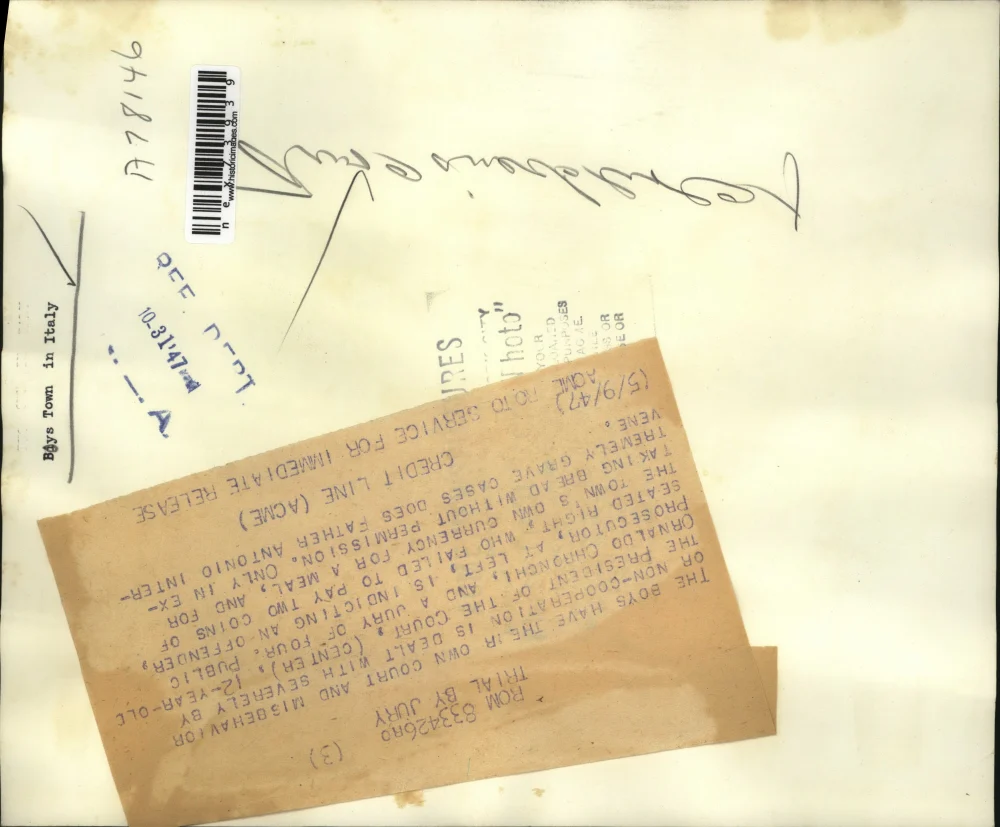 A78146
www.historicimages.com
nex39939
Boys Town in Italy
REF. DEPT.
10-31'47
URES
Photo"
(3)
ROM 833426RO
TRIAL BY JURY
THE BOYS HAVE THEIR OWN COURT AND MISBEHAVIOR
OR NON-COOPERATION IS DEALT WITH SEVERELY BY
THE PRESIDENT OF THE COURT, (CENTER). 12-YEAR-OLD
ORNALDO CHRONCHI, AND A JURY OF FOUR. PUBLIC
PROSECUTOR, AT LEFT, IS INDICTING AN OFFENDER,
SEATED RIGHT, WHO FAILED TO PAY TWO COINS OF
THE TOWN'S OWN CURRENCY FOR A MEAL, AND FOR
TAKING BREAD WITHOUT PERMISSION. ONLY IN EX-
TREMELY GRAVE CASES DOES FATHER ANTONIO INTER-
VENE.
CREDIT LINE (ACME)
ACME ROTO SERVICE FOR IMMEDIATE RELEASE
(5/9/47)